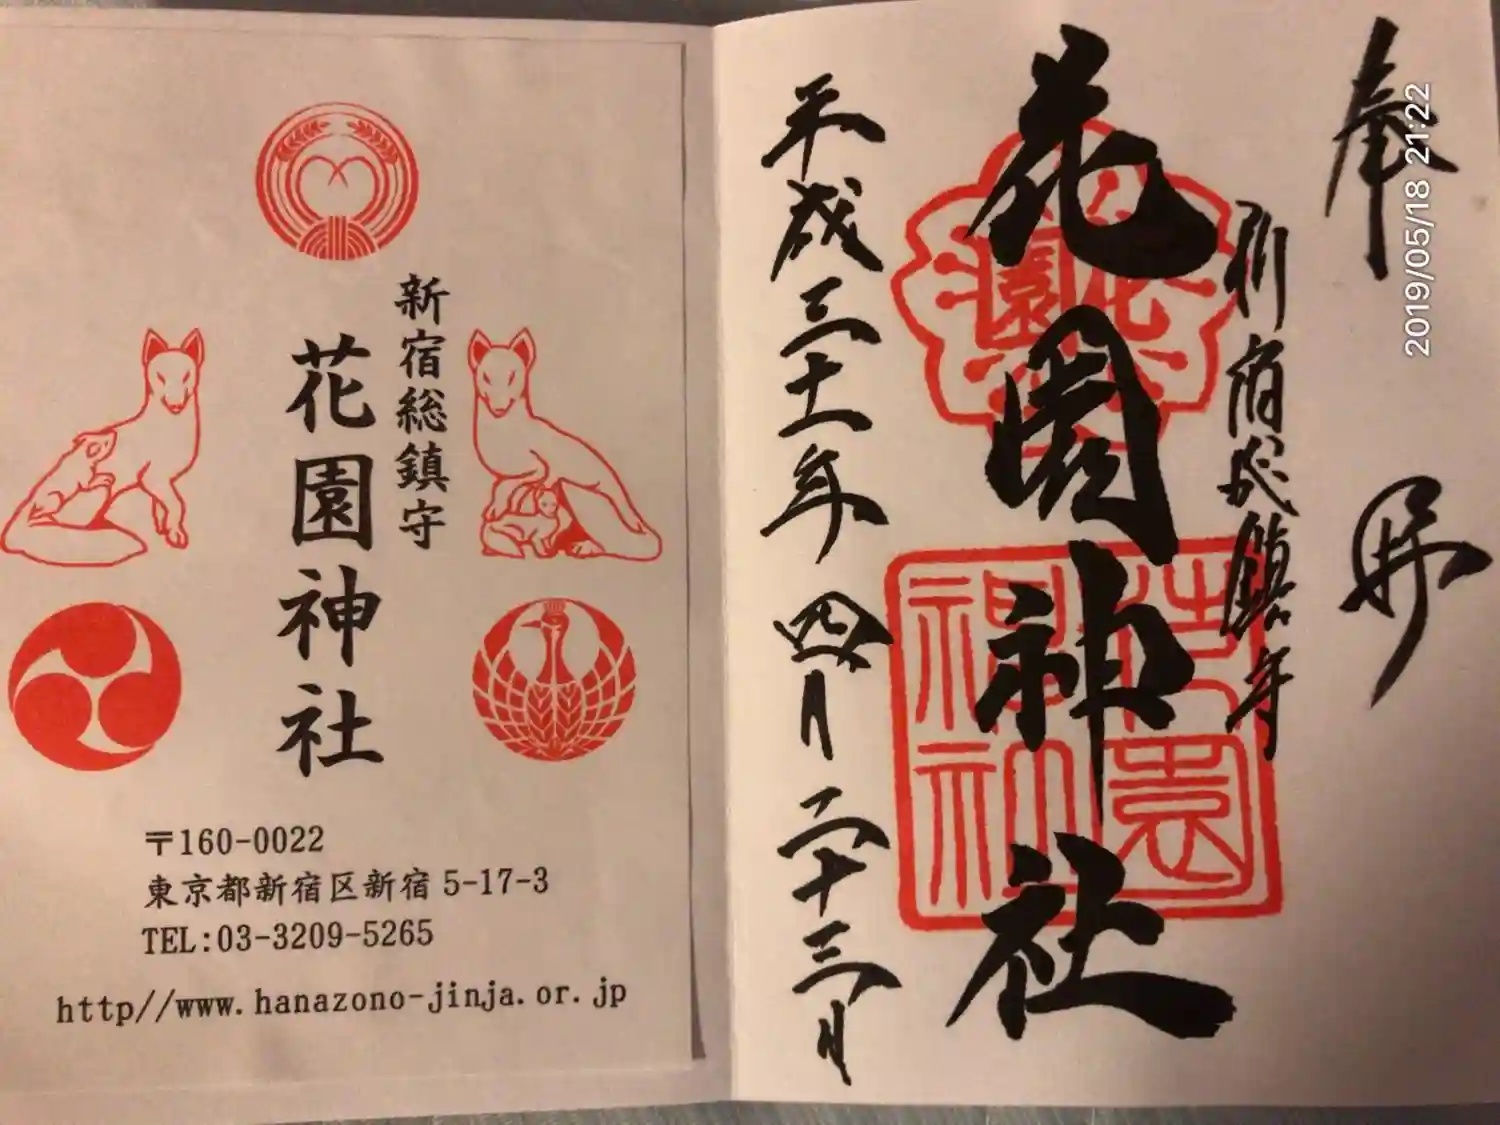 新宿総鎮守
花園神社
〒160-0022
東京都新宿区新宿5-17-3
TEL:03-3209-5265
http//www.hanazono-jinja.or.jp
奉拝
新宿総鎮守
花園神社
平成三十一年四月二十三日
花園
花園神社
2019/05/18 21:22